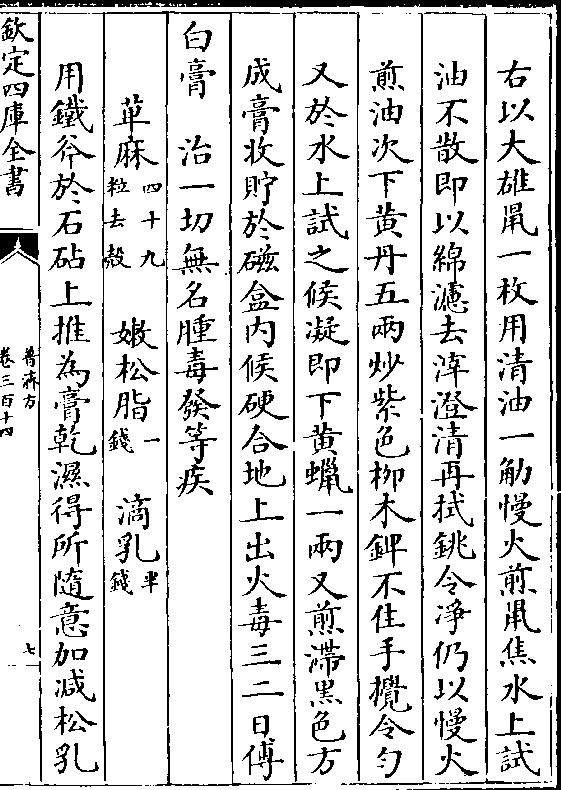 右以大雄鼠一枚用清油一觔慢火煎鼠焦水上試
油不散即以綿濾去滓澄清再拭銚令凈仍以慢火
煎油次下黄丹五兩炒紫色柳木鎞不住手攪令勻
又於水上試之候凝即下黄蠟一兩又煎滯黒色方
成膏收貯於磁盒内候硬合地上出火毒三二日傅
白膏　治一切無名腫毒發等疾
萆麻四十九粒去殼　嫩松脂一錢　滴乳半錢
用鐵斧於石砧上推為膏乾濕得所隨意加减松乳
欽定四庫全書
普濟方
卷三百十四
七